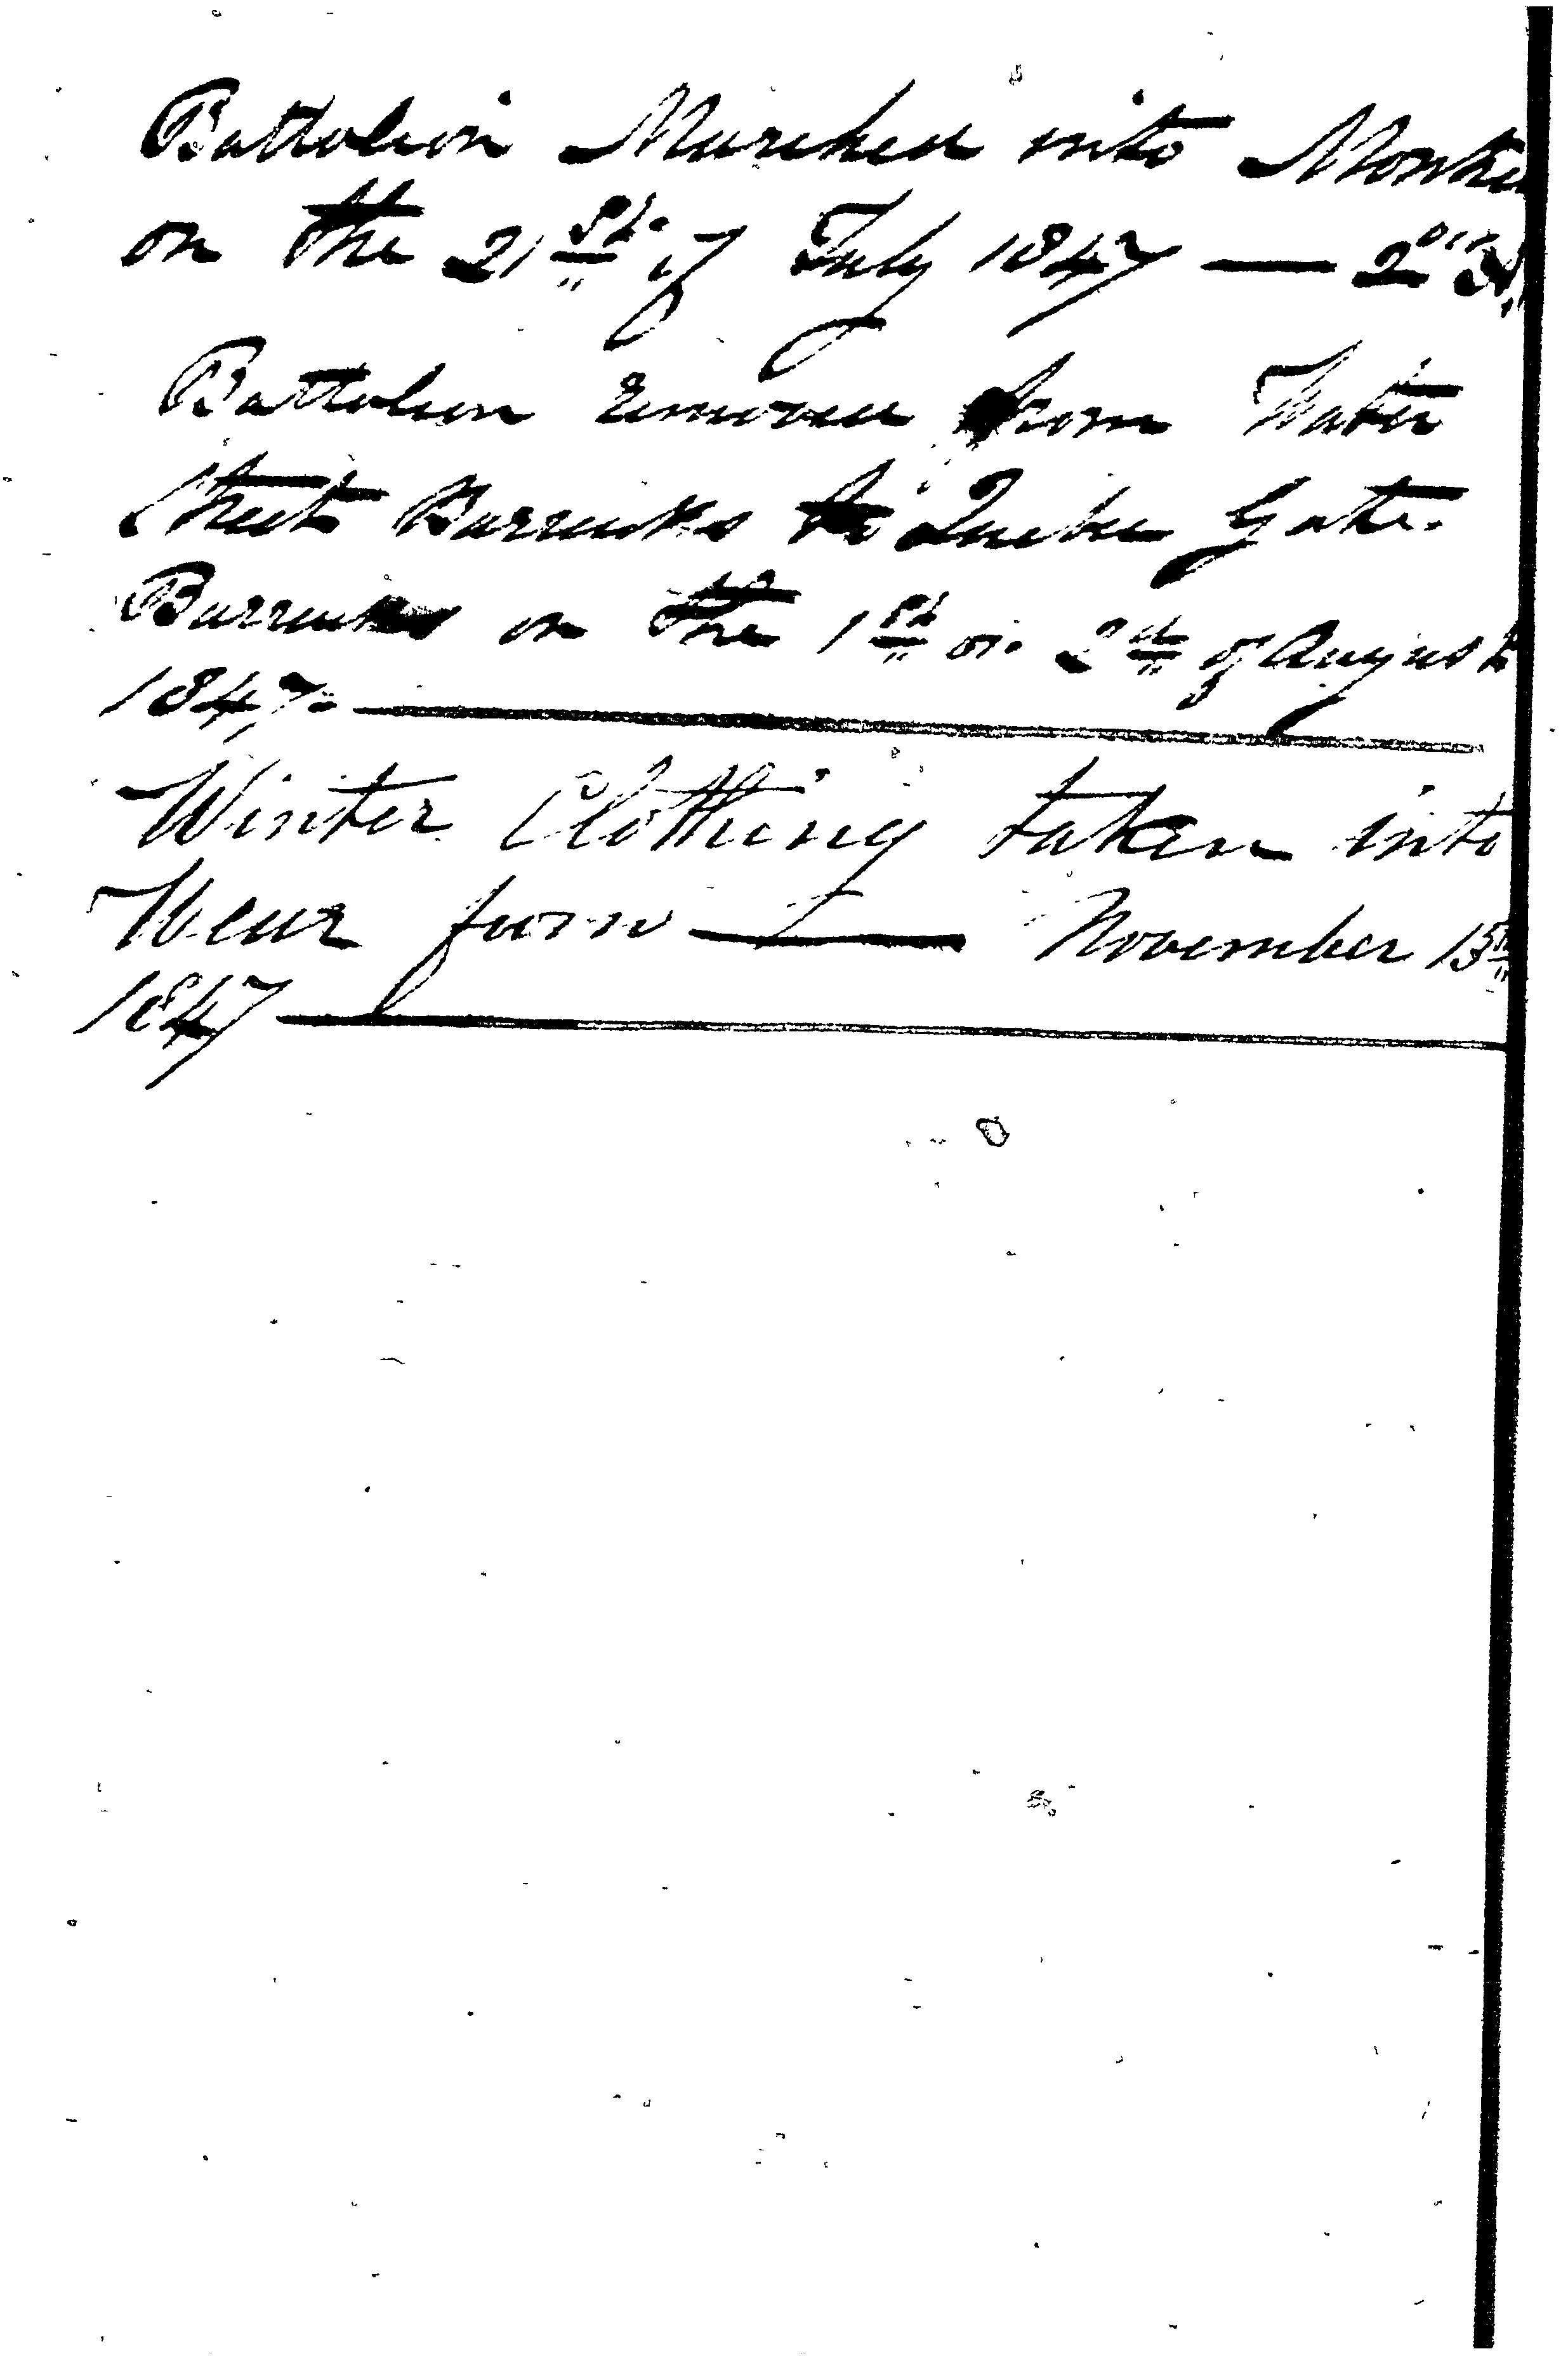 Battolion Marched into Montre
on the 21st of July 1847 — 2
Battolion removed from Water
Street Barracks to Quebec Gate
Barracks on the 1st or 2d of August
1847
Winter Clothing taken into
Wear from — November 15th
1847